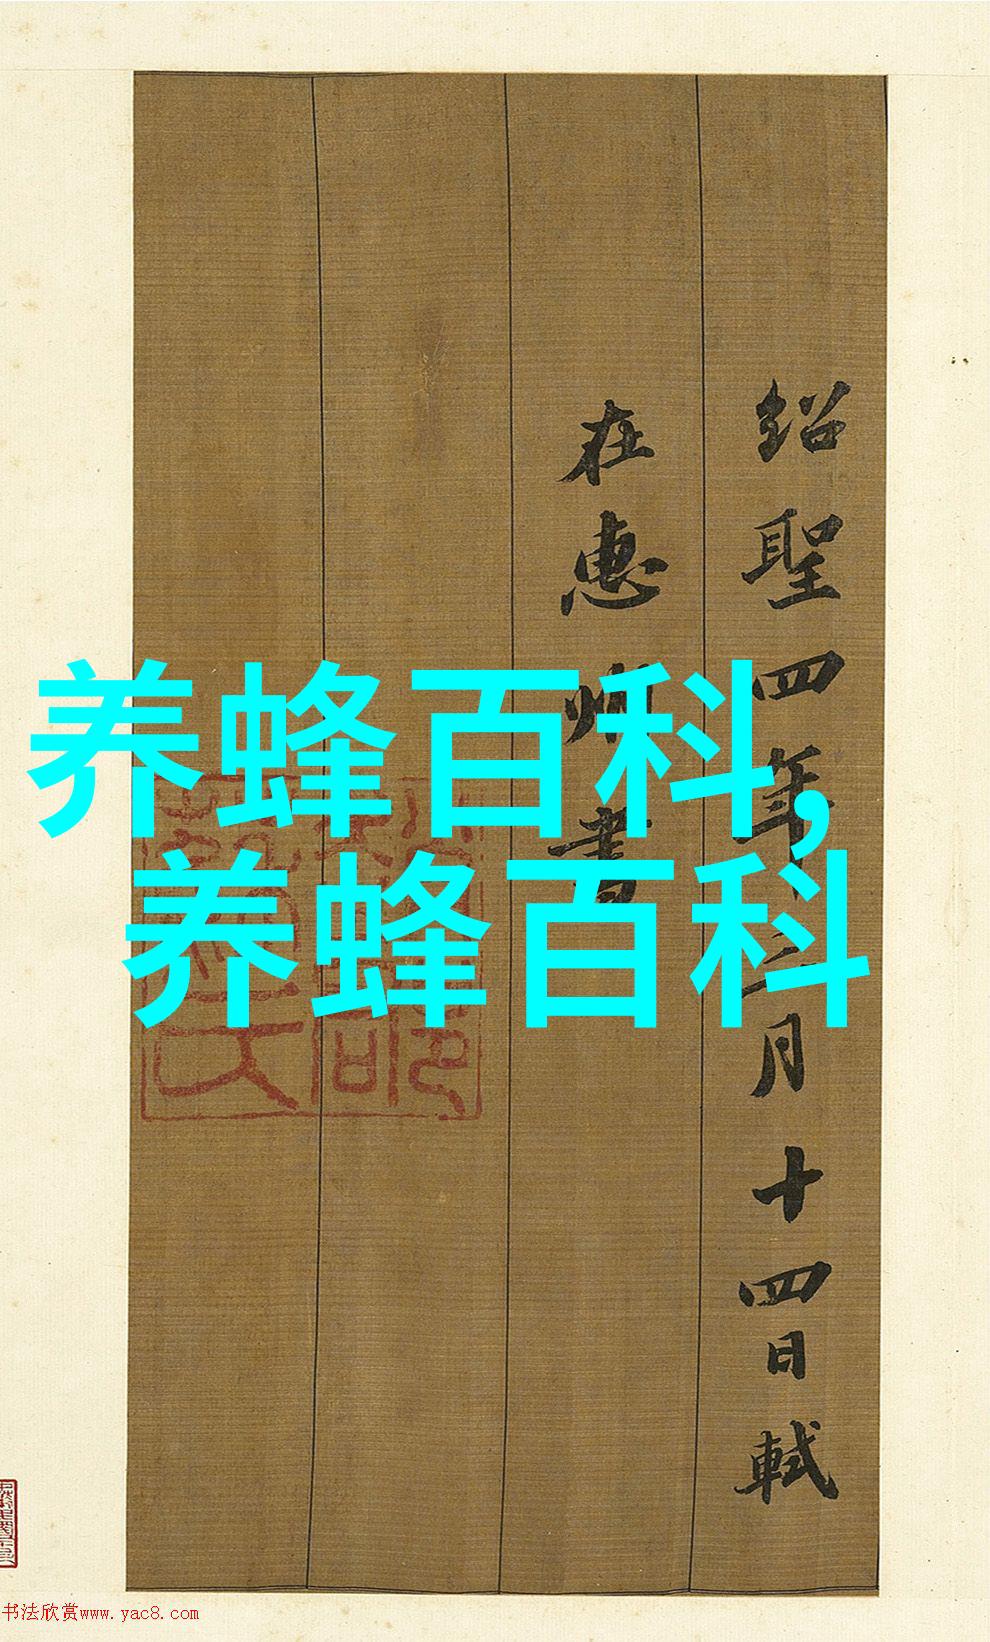 养蜂百科,
养蜂百科
紹聖四年三月十四日軾
在惠州書
书法欣赏www.yac8.com